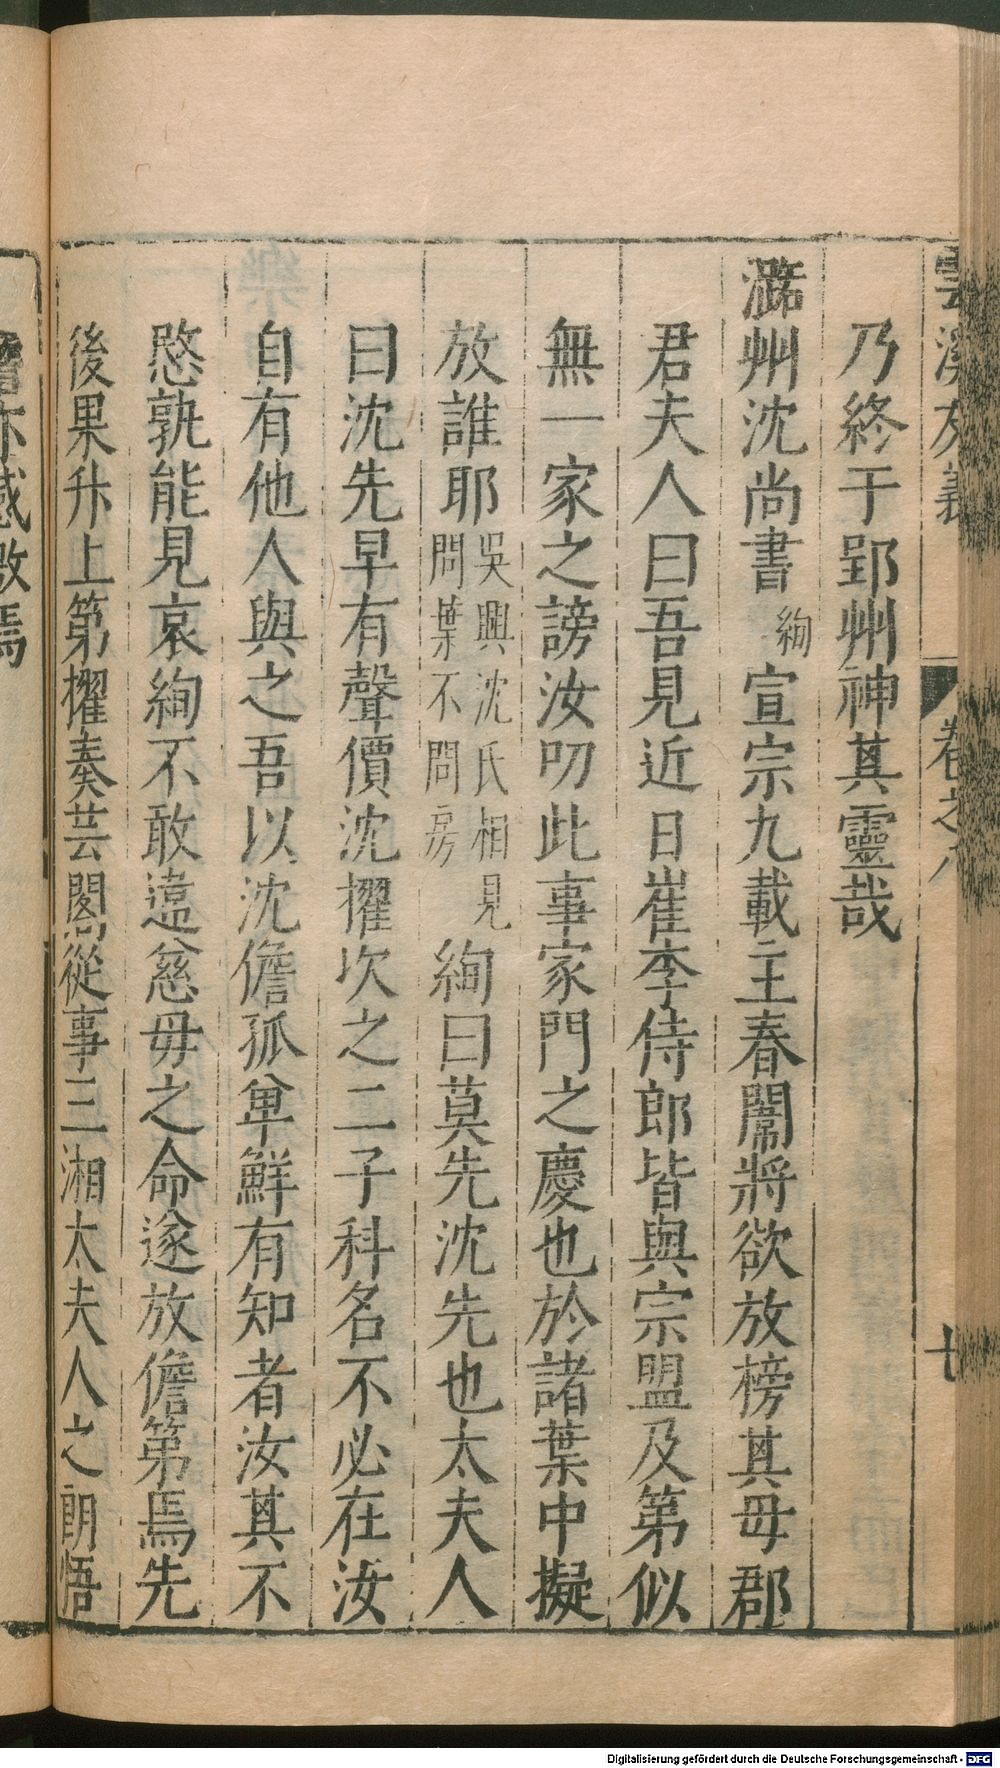 雲溪友議　卷之八　七
乃終于郢州神其靈哉
潞州沈尚書絢宣宗九載主春闈將欲放榜其母郡
君夫人曰吾見近日崔李侍郎皆與宗盟及第似
無一家之謗汝叨此事家門之慶也於諸葉中擬
放誰耶吳興沈氏相見問葉不問房絢曰莫先沈先也太夫人
曰沈先早有聲價沈擢次之二子科名不必在汝
自有他人與之吾以沈儋孤單鮮有知者汝其不
愍孰能見哀絢不敢違慈母之命遂放儋第焉先
後果升上第擢奏芸閣從事三湘太夫人之朗悟
儋亦感激焉
Digitalisierung gefördert durch die Deutsche Forschungsgemeinschaft - DFG